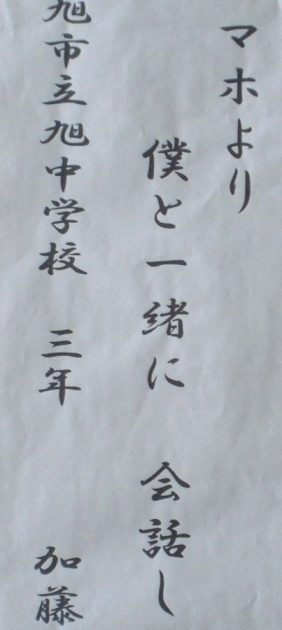 マホより
僕と一緒に 会話し
旭市立旭中学校 三年 加藤